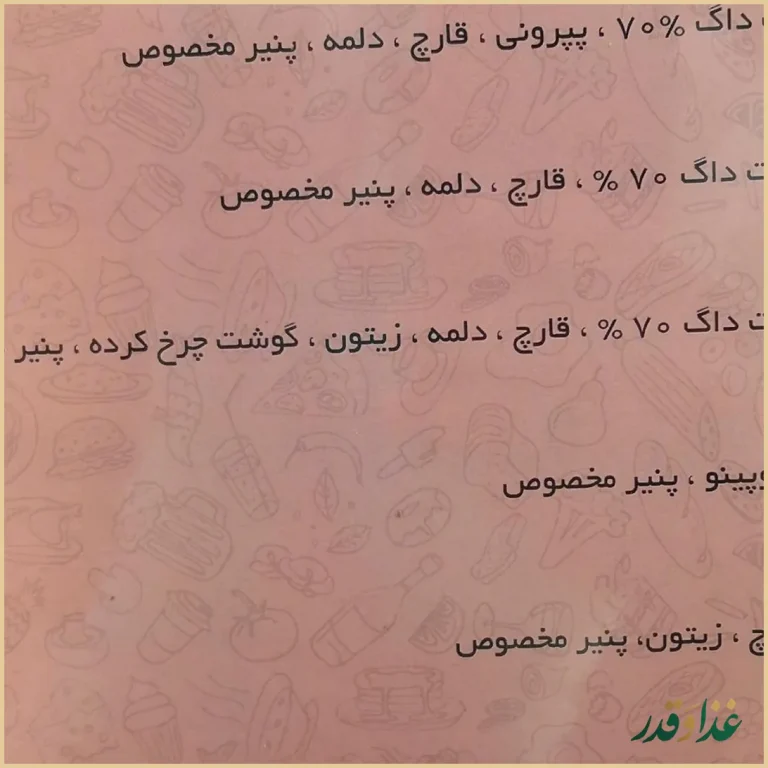 داگ 70% ، پپرونی ، قارچ ، دلمه ، پنیر مخصوص
داگ 70 % ، قارچ ، دلمه ، پنیر مخصوص
داگ 70 % ، قارچ ، دلمه ، زیتون ، گوشت چرخ کرده ، پنیر
پنیر مخصوص
، زیتون، پنیر مخصوص
غذا و قدر